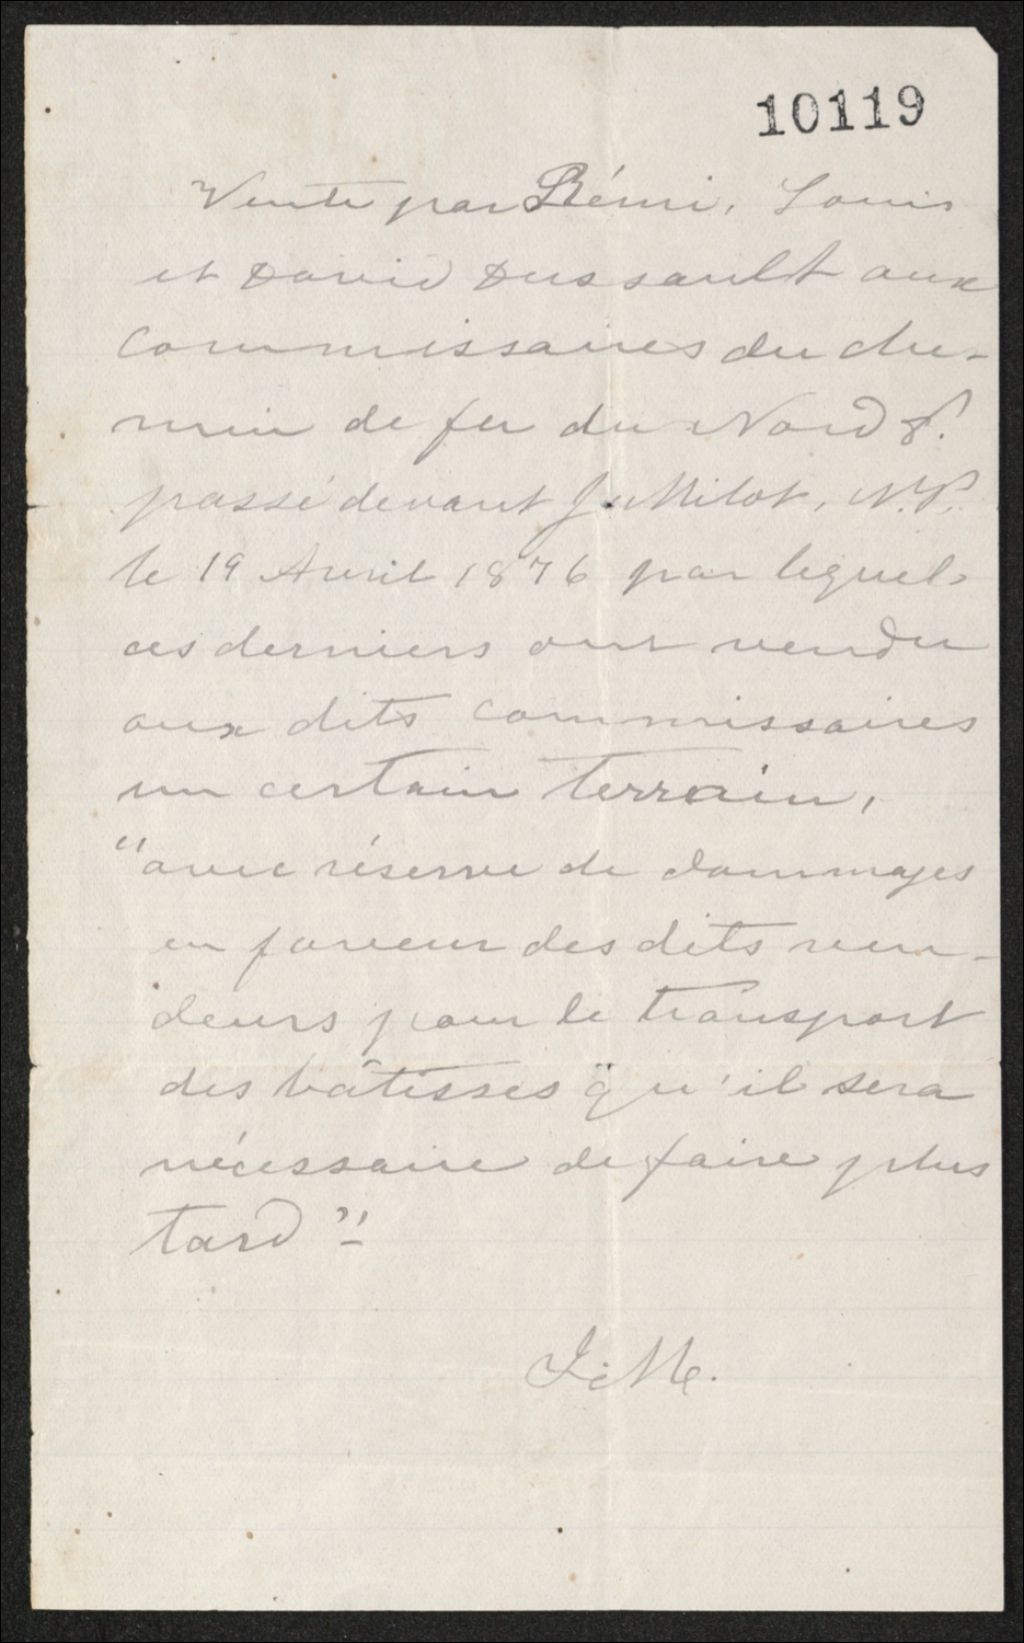 10119
Vente par Rémi, Louis
et David Dussault aux
Commissaires du che-
min de fer du Nord &.
passé devant J. Milot, N.P.
le 19 Avril 1876 par lequel
ces derniers ont vendu
aux dits commissaires
un certain terrain,
"avec réserve de dommages
en faveur des dits ven-
deurs pour le transport
des bâtisses "qu'il sera
nécessaire de faire plus
tard"
J. M.